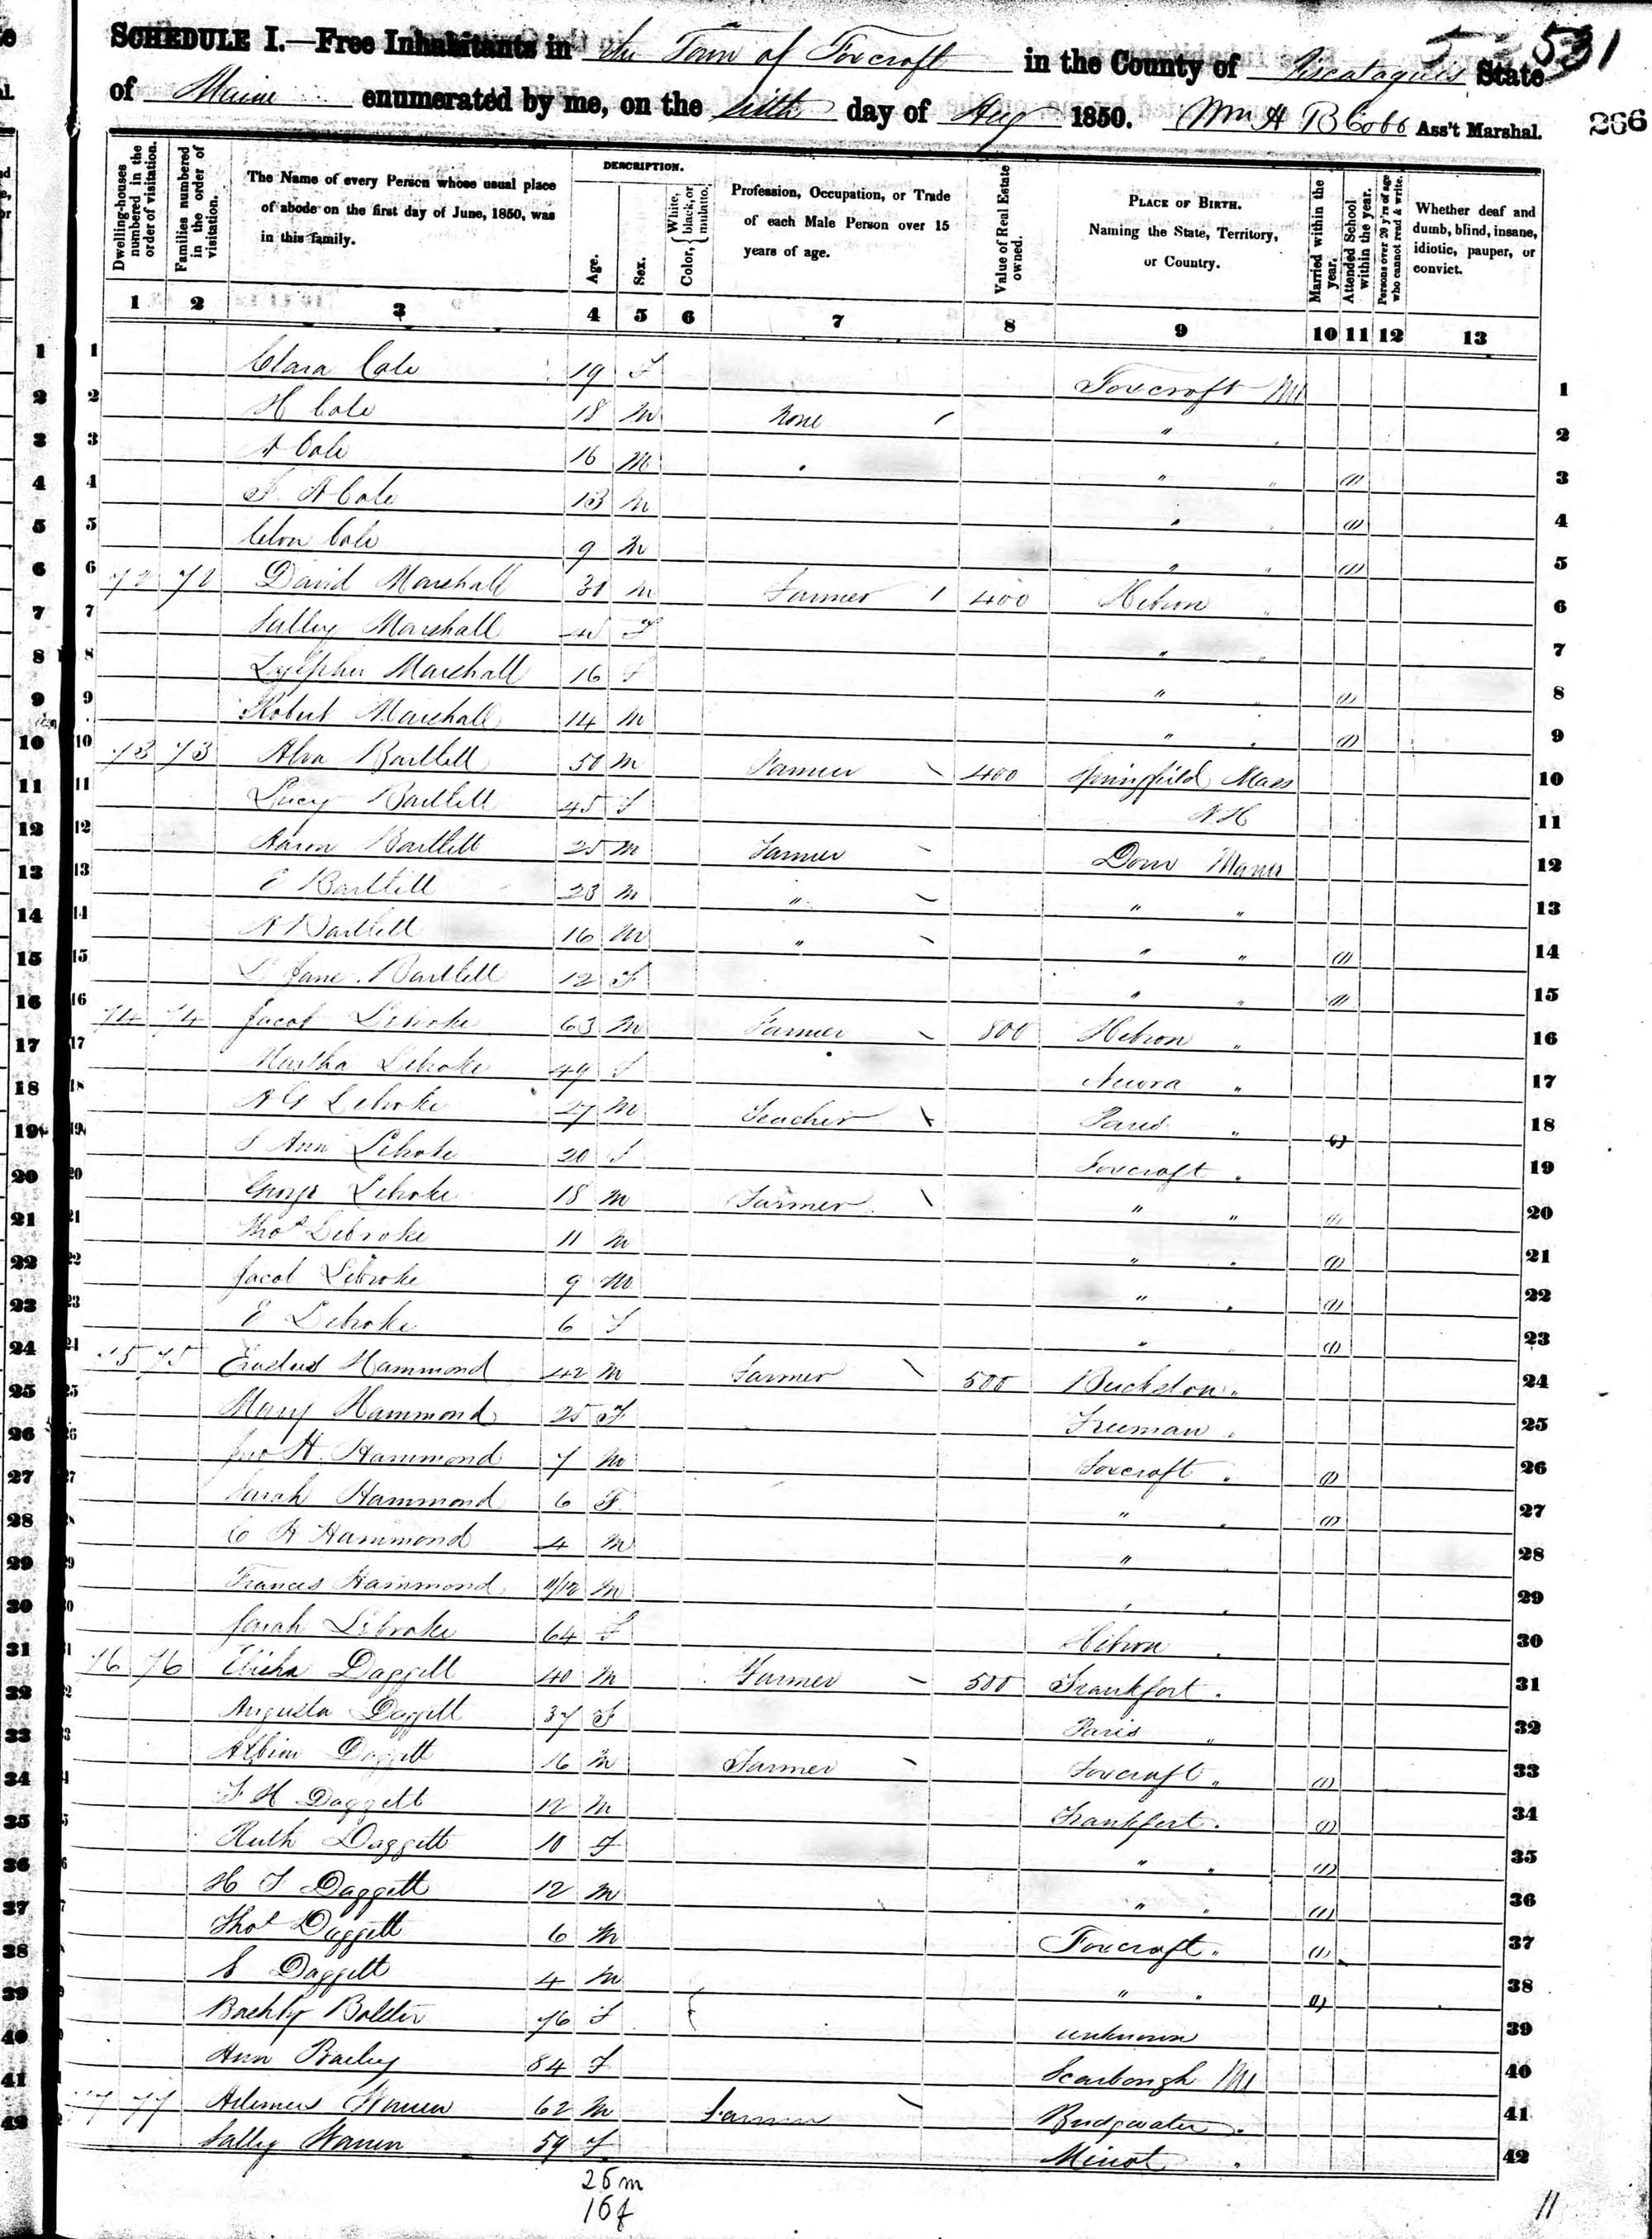 531
SCHEDULE I.—Free Inhabitants in the Town of Foxcroft in the County of Piscataquis State
of Maine enumerated by me, on the sixth day of Aug 1850. Wm H B Cobb Ass't Marshal.
266
Dwelling-houses numbered in the order of visitation.
Families numbered in the order of visitation.
The Name of every Person whose usual place of abode on the first day of June, 1850, was in this family.
DESCRIPTION.
Age.
Sex.
Color, White, black, or mulatto.
Profession, Occupation, or Trade of each Male Person over 15 years of age.
Value of Real Estate owned.
PLACE OF BIRTH. Naming the State, Territory, or Country.
Married within the year.
Attended School within the year.
Persons over 20 y'rs of age who cannot read & write.
Whether deaf and dumb, blind, insane, idiotic, pauper, or convict.
1 2 3 4 5 6 7 8 9 10 11 12 13
1 Clara Cole 19 F Foxcroft Me 1
2 H Cole 18 M None " 2
3 A Cole 16 M " " (1) 3
4 F. A Cole 13 M " " (1) 4
5 Cole 9 M " " (1) 5
6 72 72 David Marshall M Farmer 400 Hebron " 6
7 Sally Marshall F " " 7
8 Marshall 16 F " (1) 8
9 Robert Marshall 14 M " " (1) 9
10 73 73 Alva Bartlett 50 M Farmer 400 Springfield Mass 10
11 Lucy Bartlett 45 F N H 11
12 Aaron Bartlett 25 M Farmer Dover Maine 12
13 E Bartlett 23 M " " " 13
14 A Bartlett 16 M " " " (1) 14
15 Jane Bartlett 12 F " " (1) 15
16 74 74 Jacob Lebroke 63 M Farmer 800 Hebron " 16
17 Martha Lebroke 49 F " 17
18 A G Lebroke 27 M Teacher Paris " (1) 18
19 Ann Lebroke 20 F Foxcroft " 19
20 George Lebroke 18 M Farmer " " (1) 20
21 Thos Lebroke 11 M " " (1) 21
22 Jacob Lebroke 9 M " " (1) 22
23 E Lebroke 6 F " " (1) 23
24 75 75 Erastus Hammond 42 M Farmer 500 " 24
25 Mary Hammond 25 F Freeman " 25
26 Jno H. Hammond 7 M Foxcroft " (1) 26
27 Sarah Hammond 6 F " " (1) 27
28 C Hammond 4 M " 28
29 Frances Hammond 11/12 M " " 29
30 Sarah Lebroke 64 F Hebron " 30
31 76 76 Elisha Daggett 40 M Farmer 500 Frankfort " 31
32 Augusta Daggett 37 F Paris " 32
33 Albion Daggett 16 M Farmer Foxcroft " (1) 33
34 F H Daggett 12 M Frankfort " (1) 34
35 Ruth Daggett 10 F " " (1) 35
36 H Daggett 12 M " " (1) 36
37 Thos Daggett 6 M Foxcroft " (1) 37
38 Daggett 4 M " " (1) 38
39 76 F unknown 39
40 Ann Bailey 84 F Scarborogh Me 40
41 77 77 Artemas Warren 62 M Farmer Bridgwater " 41
42 Sally Warren 59 F Minot " 42
26 m
16 f
11